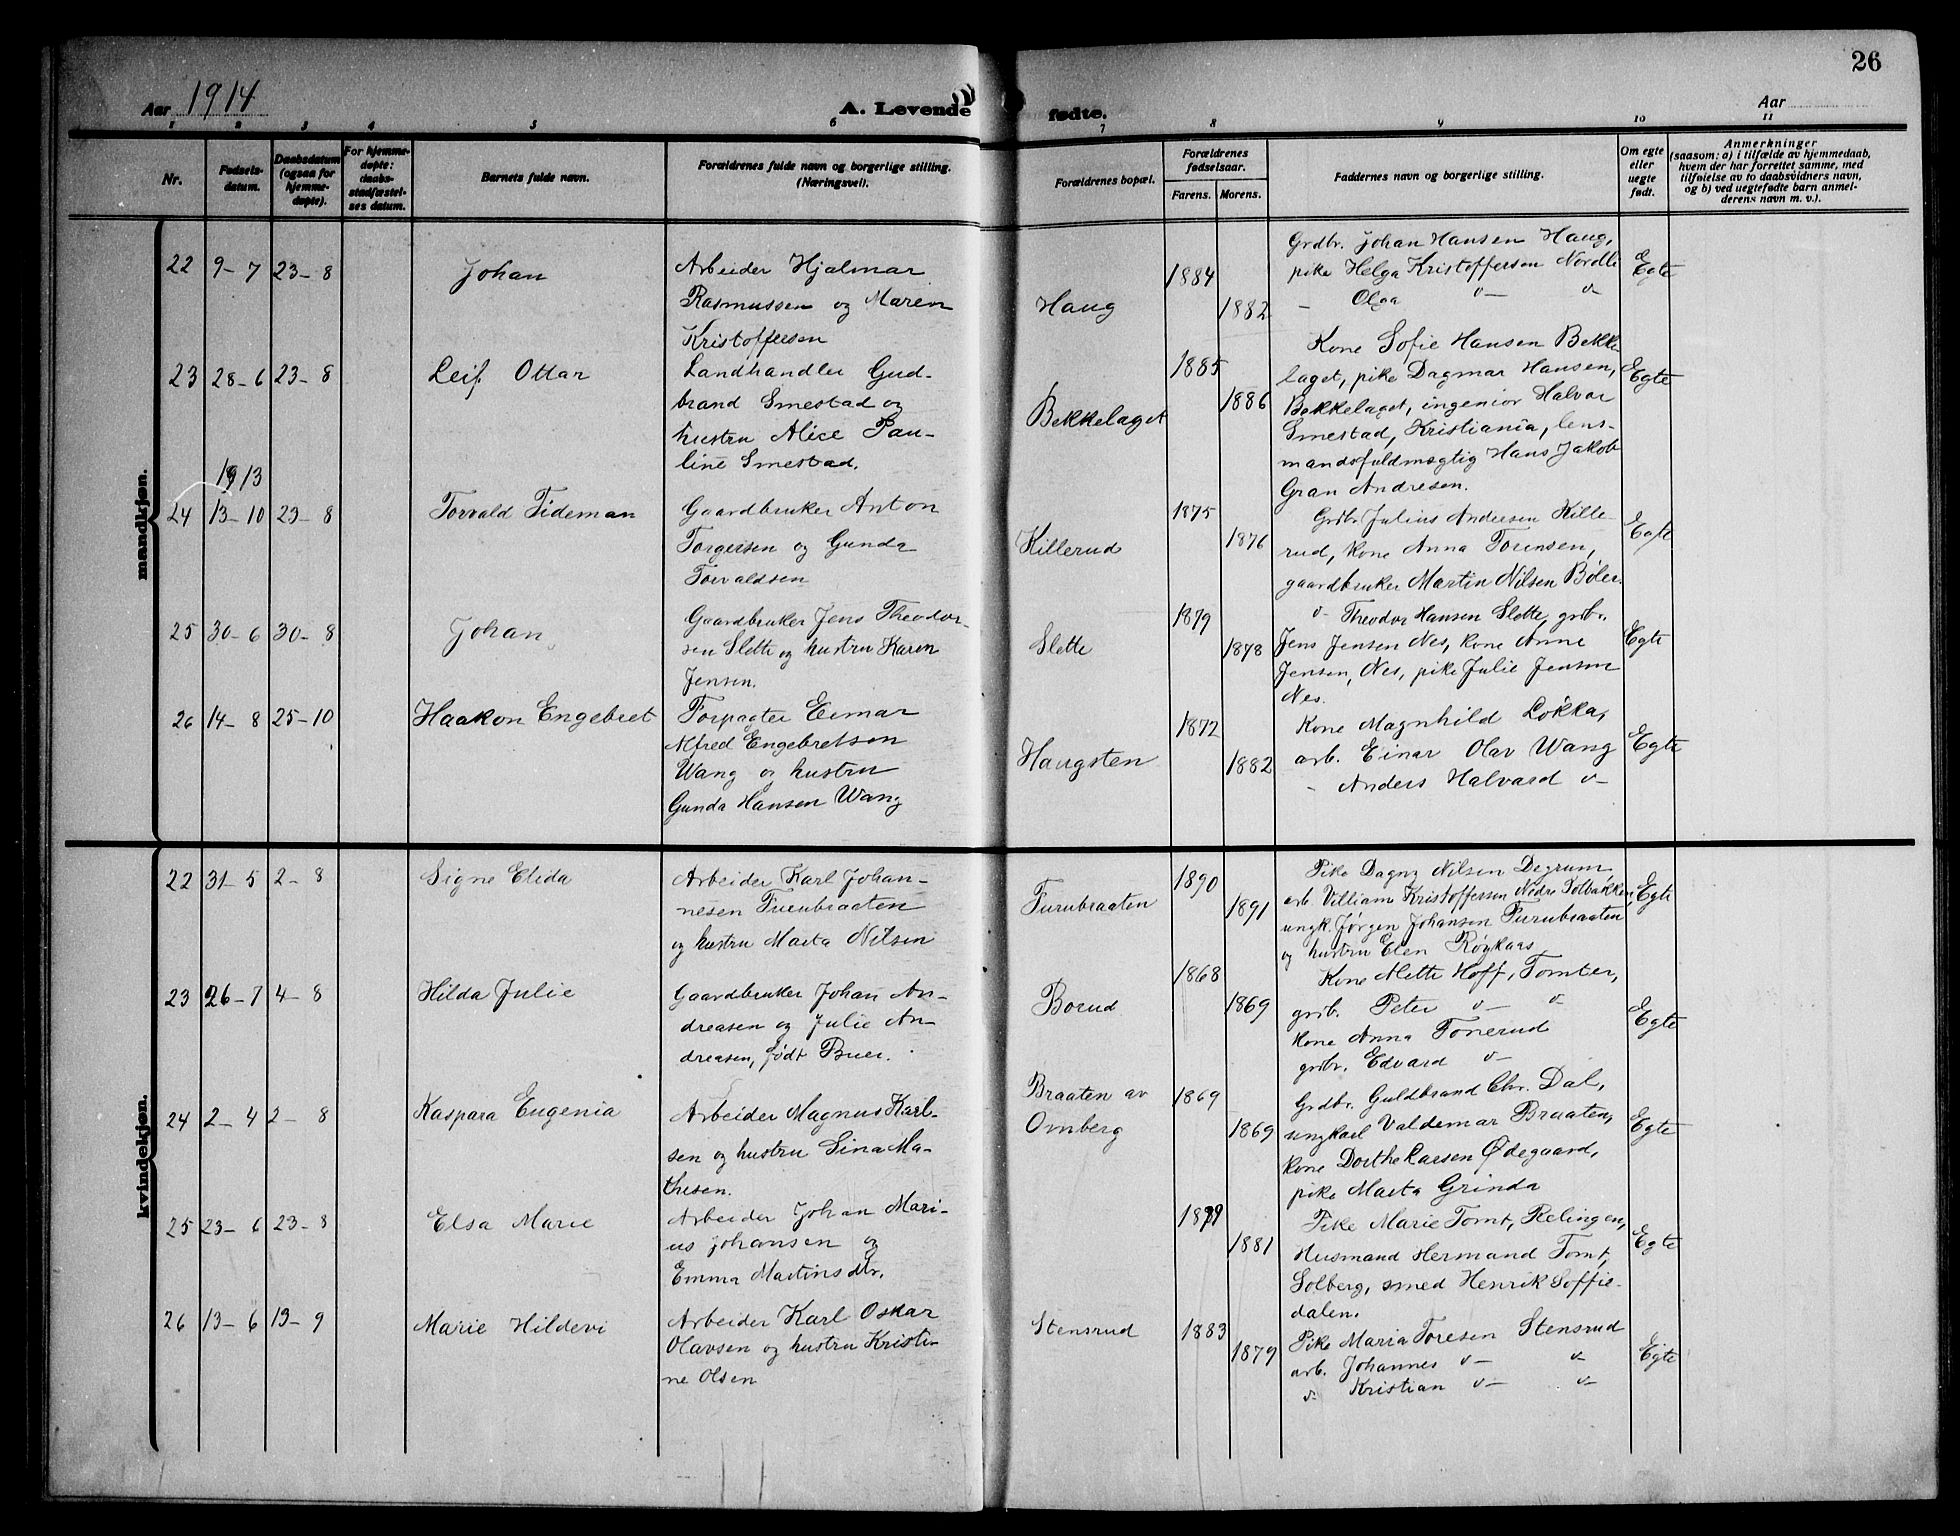 26
Aar 1914
A. Levende fødte.
Aar
1 2 3 4 5 6 7 8 9 10 11
Nr.
Fødsels-
datum.
Daabsdatum
(ogsaa for
hjemme-
døpte).
For hjemme-
døpte:
daabs-
stadfæstel-
ses datum.
Barnets fulde navn.
Forældrenes fulde navn og borgerlige stilling.
(Næringsvei).
Forældrenes bopæl.
Forældrenes
fødselsaar.
Farens. Morens.
Faddernes navn og borgerlige stilling.
Om egte
eller
uegte
født.
Anmerkninger
(saasom: a) i tilfælde av hjemmedaab,
hvem der har forrettet samme, med
tilføielse av to daabsvidners navn,
og b) ved uegtefødte barn anmel-
derens navn m. v.).
mandkjøn.
22 9-7 23-8 Johan
Arbeider Hjalmar
Rasmussen og Maren
Kristoffersen
Haug
1884
1882
Grdbr. Johan Hansen Haug,
pike Helga Kristoffersen Nordli
- Olga v- v-
Egte
23 28-6 23-8 Leif Ottar
Landhandler Gud-
brand Smestad og
hustru Alice Pau-
line Smestad.
Bekkelaget
1885
1886
Kone Sofie Hansen Bekke
laget, pike Dagmar Hansen,
Bekkelaget, ingeniør Halvar
Smestad, Kristiania, lens-
mandsfuldmægtig Hans Jakob
Gran Andresen.
Egte
1913
24 13-10 23-8 Torvald Tideman
Gaardbruker Anton
Torgersen og Gunda
Torvaldsen
Killerud
1875
1876
Grdbr. Julius Andersen Kille-
rud, kone Anna Torensen,
gaardbruker Martin Nilsen Bøler.
Egte
25 30-6 30-8 Johan
Gaardbruker Jens Theodor-
sen Slette og hustru Karen
Jensen.
Slette
1879
1878
v- Theodor Hansen Slette, grbr.
Jens Jensen Nes, kone Anne
Jensen, Nes, pike Julie Jensen
Nes.
Egte
26 14-8 25-10 Haakon Engebret
Forpagter Eimar
Alfred Engebretsen
Wang og hustru
Gunda Hansen Wang
Haugsten
1872
1882
Kone Magnhild Løkka,
arb. Einar Olav Wang
- Anders Halvard v-
Egte
kvindekjøn.
22 31-5 2-8 Signe Elida
Arbeider Karl Johan-
nesen Furubraaten
og hustru Marta Nilsen
Furubraaten
1890
1891
Pike Dagny Nilsen Degrum,
arb. Villiam Kristoffersen Nedre Solbakken,
ungk. Jørgen Johansen Furubraaten
og hustru Elen Røykaas
Egte
23 26-7 4-8 Hilda Julie
Gaardbruker Johan An-
dreasen og Julie An-
dreasen, født Buer.
Borud
1868
1869
Kone Mette Hoff, Tomter,
grbr. Peter v- v-
kone Anna Tonerud
grbr. Edvard v-
Egte
24 2-4 2-8 Kaspara Eugenia
Arbeider Magnus Karl-
sen og hustru Lina Ma-
thesen.
Braaten av
Omberg
1869
1869
Grdbr. Guldbrand Chr. Dal,
ungkarl Valdemar Braaten,
kone Dorthe Larsen Ødegaard,
pike Marta Grinda
Egte
25 23-6 23-8 Elsa Marie
Arbeider Johan Mari-
us Johansen og
Emma Martinsdtr.
1879
1881
Pike Marie Tomt, Relingen,
Husmand Hermand Tomt,
Solberg, smed Henrik Soffie-
dalen.
Egte
26 13-6 13-9 Marie Hildevi
Arbeider Karl Oskar
Olavsen og hustru Kristi-
ne Olsen
Stensrud
1883
1879
Pike Maria Toresen Stensrud
arb. Johannes v- v-
v- Kristian v- v-
Egte